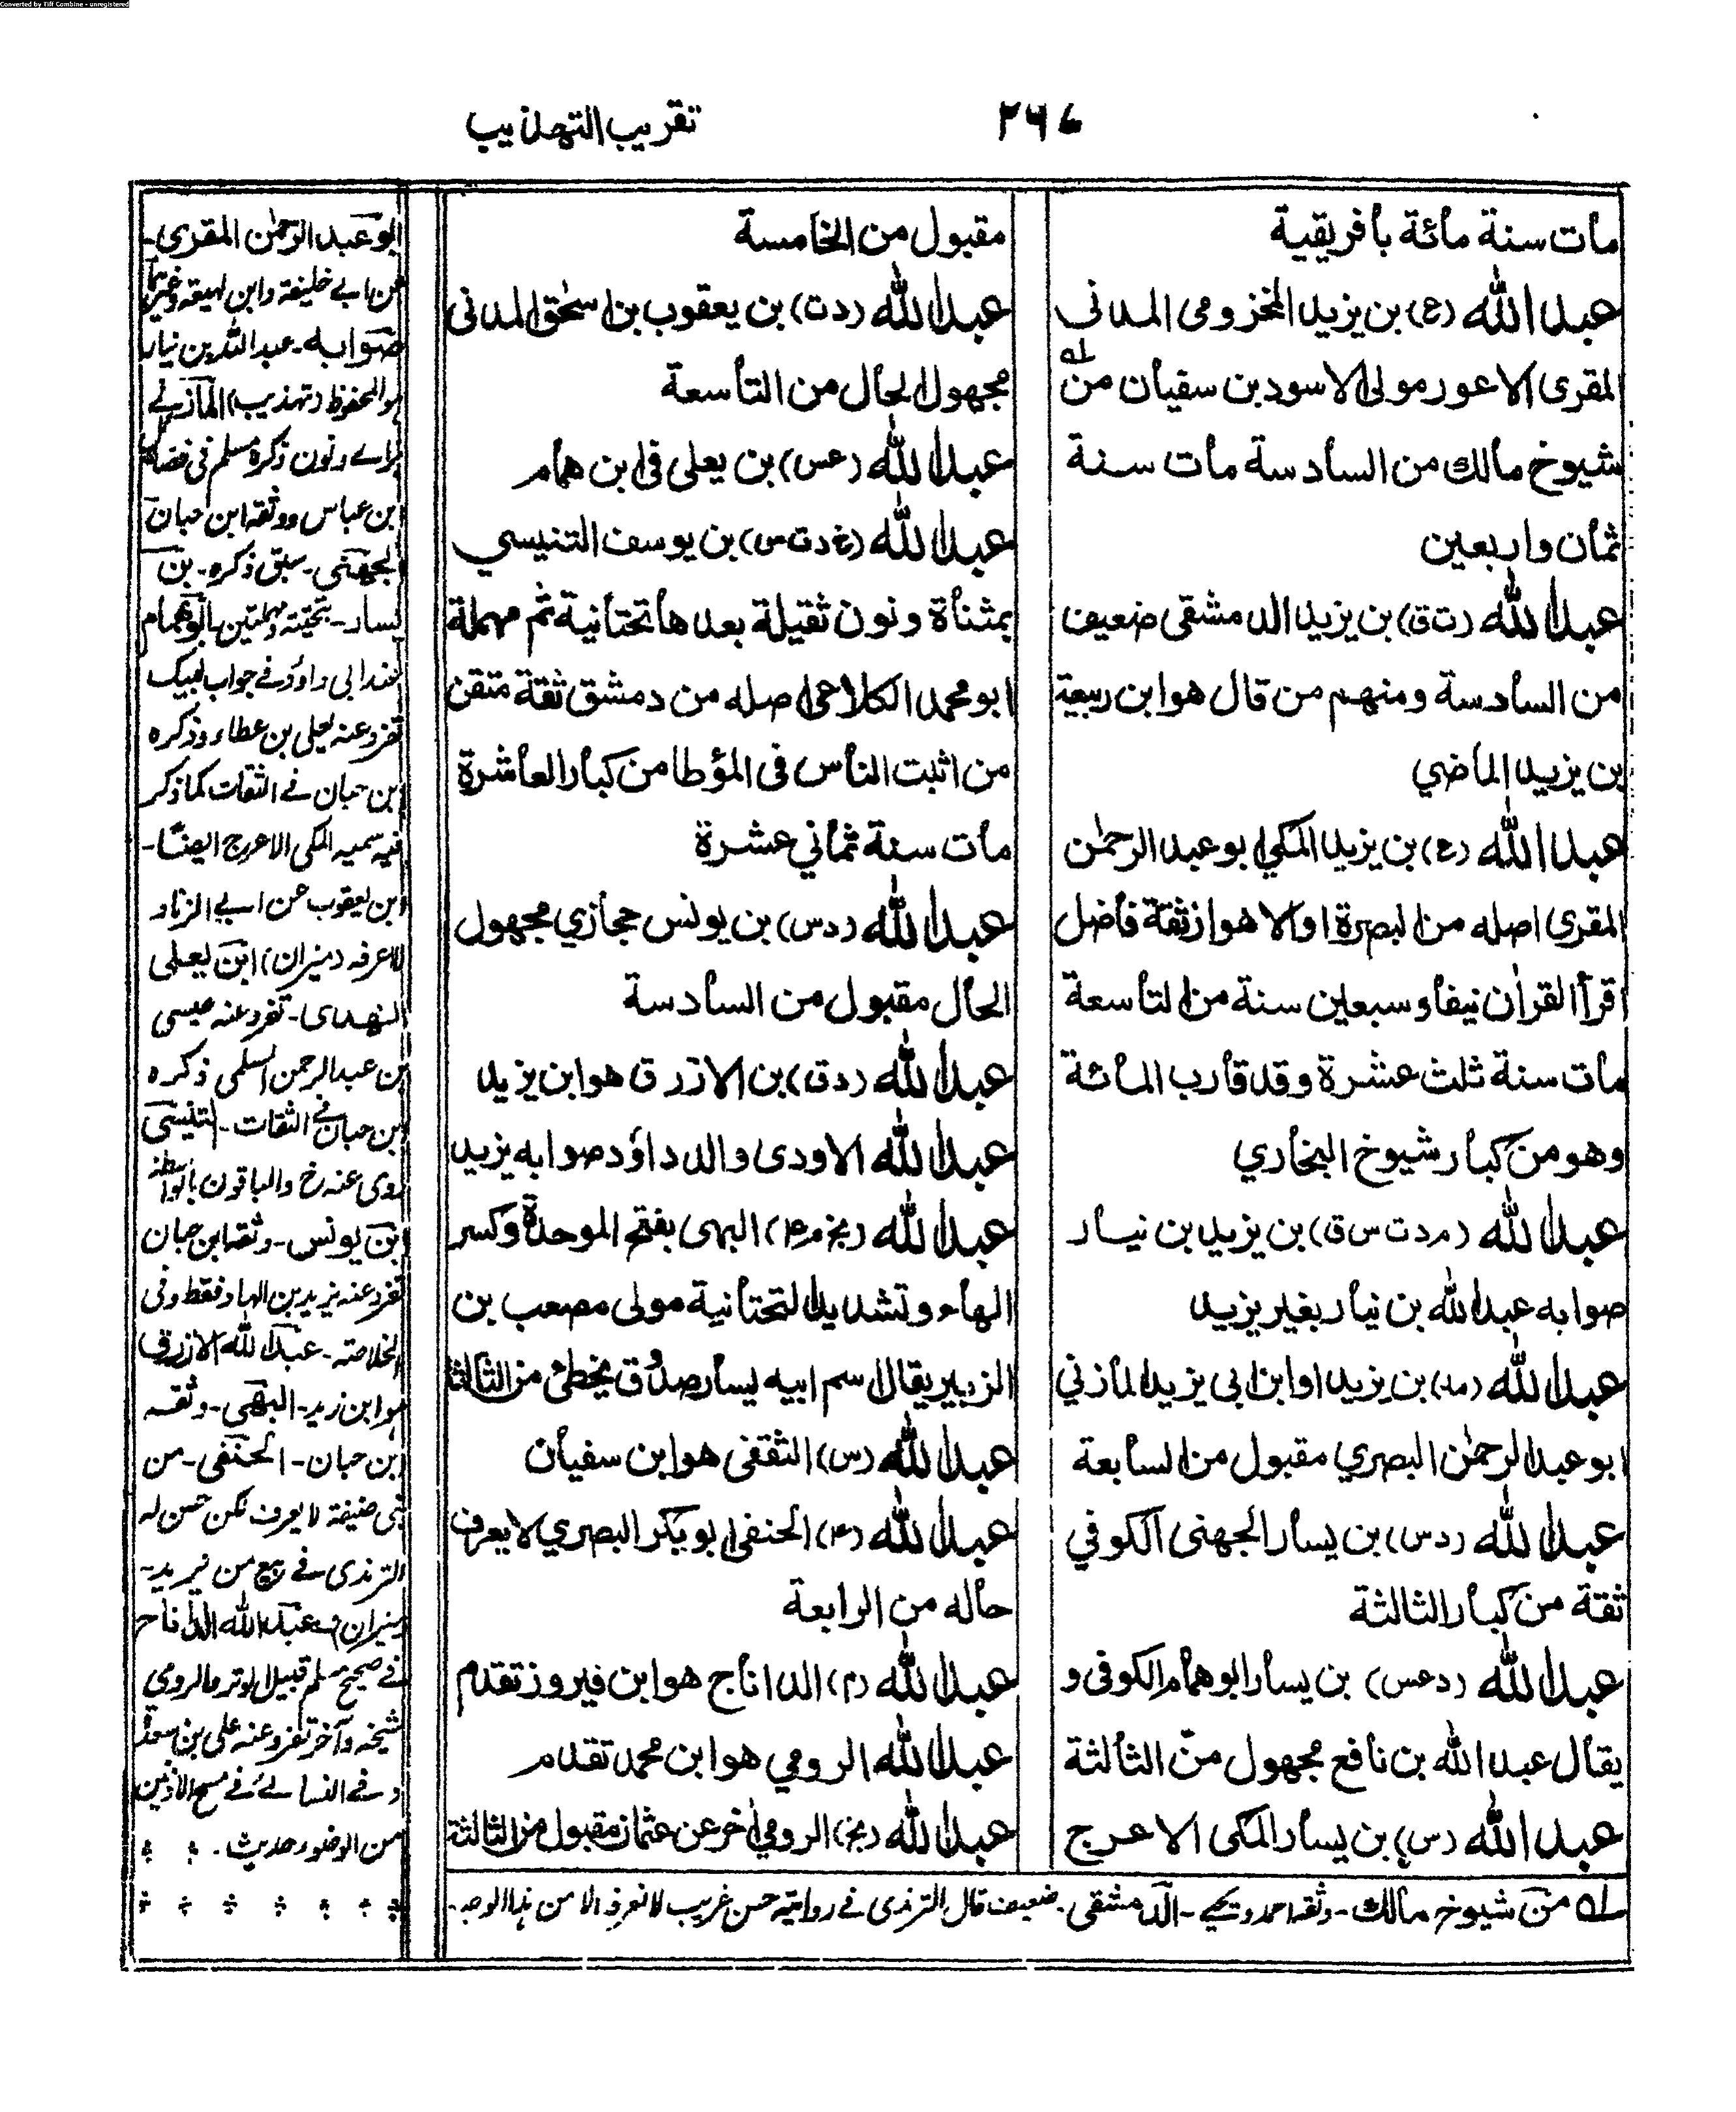 Converted by Tiff Combine - unregistered
٢٦٧
تقريب التهذيب
مات سنة مائة بأفريقية
عبد الله (ع) بن يزيد المخزومى المدنى
المقرى الاعور مولى الاسود بن سفيان من له
شيوخ مالك من السادسة مات سنة
ثمان واربعين
عبد الله (ت ق) بن يزيد الدمشقى ضعيف
من السادسة ومنهم من قال هو ابن ربيعة
بن يزيد الماضي
عبد الله (ع) بن يزيد المكى ابو عبد الرحمٰن
المقرى اصله من البصرة او الاهواز ثقة فاضل
اقرأ القراٰن نيفا وسبعين سنة من التاسعة
مات سنة ثلث عشرة وقد قارب المائة
وهو من كبار شيوخ البخاري
عبد الله (م د ت س ق) بن يزيد بن نيار
صوابه عبد الله بن نيار بغير يزيد
عبد الله (مد) بن يزيد او ابن ابى يزيد المازني
ابو عبد الرحمٰن البصري مقبول من السابعة
عبد الله (د س) بن يسار الجهنى الكوفي
ثقة من كبار الثالثة
عبد الله (د عس) بن يسار ابو همام الكوفى و
يقال عبد الله بن نافع مجهول من الثالثة
عبد الله (س) بن يسار المكى الاعرج
مقبول من الخامسة
عبد الله (د ت) بن يعقوب بن اسحٰق المدنى
مجهول الحال من التاسعة
عبد الله (عس) بن يعلى فى ابن همام
عبد الله (خ د ت س) بن يوسف التنيسي
بمثناة ونون ثقيلة بعدها تحتانية ثم مهملة
ابو محمد الكلاعى اصله من دمشق ثقة متقن
من اثبت الناس فى المؤطا من كبار العاشرة
مات سنة ثماني عشرة
عبد الله (د س) بن يونس حجازي مجهول
الحال مقبول من السادسة
عبد الله (د ق) بن الازرق هو ابن يزيد
عبد الله الاودى والد داؤد صوابه يزيد
عبد الله (بخ م ٤) البهى بفتح الموحدة وكسر
الهاء وتشديد التحتانية مولى مصعب بن
الزبير يقال اسم ابيه يسار صدوق يخطئ من الثالثة
عبد الله (س) الثقفى هو ابن سفيان
عبد الله (٤) الحنفى ابو بكر البصري لا يعرف
حاله من الرابعة
عبد الله (م) الداناج هو ابن فيروز تقدم
عبد الله الرومي هو ابن محمد تقدم
عبد الله (بخ) الرومي اٰخر عن عثمان مقبول من الثالثة
ابو عبد الرحمٰن المقرى-
عن ابى خليفة وابن لهيعة وغيرهما
صوابه- عبد الله بن نيار
هو المحفوظ (تهذيب) المازنے
بزاے ونون ذكره مسلم فى
ابن عباس ووثقه ابن حبان
الجهنى- سبق ذكره- بن
يسار- بتحتية ومهملتين ابو همام
عند ابى داؤد فے جواب لبيك
تفرد عنه يعلى بن عطاء وذكره
ابن حبان فے الثقات كما ذكر
فيه سميه المكى الاعرج ايضًا-
ابن يعقوب عن ابے الزناد
لا اعرفه (ميزان) ابن يعلى
النهدى- تفرد عنه عيسى
بن عبد الرحمن السلمى ذكره
ابن حبان فے الثقات- التنيسى
روى عنه خ والباقون بالواسطة
ابن يونس- وثقه ابن حبان
تفرد عنه يزيد بن الهاد فقط وفى
الخلاصة- عبد الله الازرق
هو ابن زيد- البهى- وثقه
ابن حبان- الحنفى- من
بنى حنيفة لا يعرف لكن حسن له
الترمذى فے بيع من يزيد-
(ميزان) عبد الله الداناج
فے صحيح مسلم قبيل الوتر
شيخه وآخر تفرد عنه على بن
وفے النسائے فے مسح الاذنين
من الوضوء حديث.
له من شيوخ مالك- وثقه احمد ويحيے- الدمشقى. ضعيف قال الترمذى فے روايته حسن غريب لا نعرفه الا من هذا الوجه-